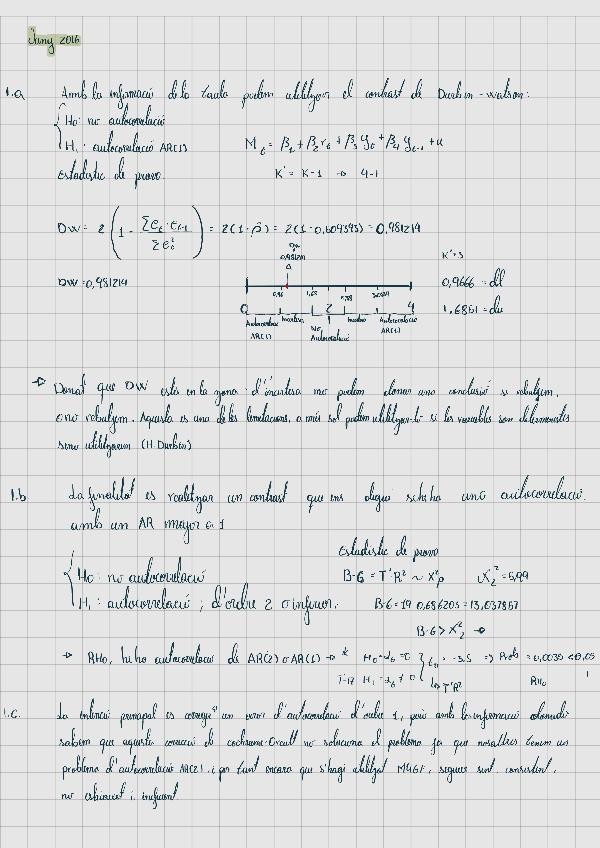 Juny 2016
1.a Amb la informació de la taula podem utilitzar el contrast de Durbin-Watson:
H0: no autocorrelació
H1: autocorrelació AR(1)
Mt = β1 + β2 rt + β3 yt + β4 yt-1 + u
Estadístic de prova
K' = K-1 → 4-1
DW = 2 (1 - Σet·et-1 / Σet²) = 2(1-ρ̂) = 2(1-0,509393) = 0,981214
DW
0,981214
K'=3
DW = 0,981214
0,9666 = dl
0,96 1,68
0 2 4
1,6851 = du
Autocorrelació AR(1) Incertesa No Autocorrelació Incertesa Autocorrelació AR(1)
→ Donat que DW està en la zona d'incertesa no podem donar una conclusió si rebutgem,
o no rebutgem. Aquesta es una de les limitacions, a més sol podem utilitzar-lo si les variables son deterministes
sino utilitzarem (H. Durbin)
1.b La finalitat es realitzar un contrast que ens digui si hi ha una autocorrelació.
amb un AR major a 1
Estadístic de prova
H0: no autocorrelació
B-G = T'·R² ~ X²p X2² = 5,99
H1: autocorrelació ; d'ordre 2 o inferior.
B-G = 19·0,686203 = 13,037857
B-G > X2² →
→ RH0, hi ha autocorrelació de AR(2) o AR(1) → * H0 = α6 = 0 t0 = -3.5 ⇒ Prob = 0,0035 < 0,05
H1 = α6 ≠ 0 T'R² RH0
1.c. La intenció principal es corregir un error d'autocorrelació d'ordre 1, però amb la informació donada
sabem que aquesta correcció de Cochrane-Orcutt no soluciona el problema ja que nosaltres tenim un
problema d'autocorrelació AR(2). i per tant encara que s'hagi utilitzat segueix sent consistent,
no esbiaixat i ineficient.